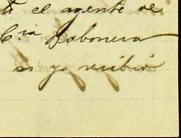 el agente de
Cia Jabonera
si yo recibió